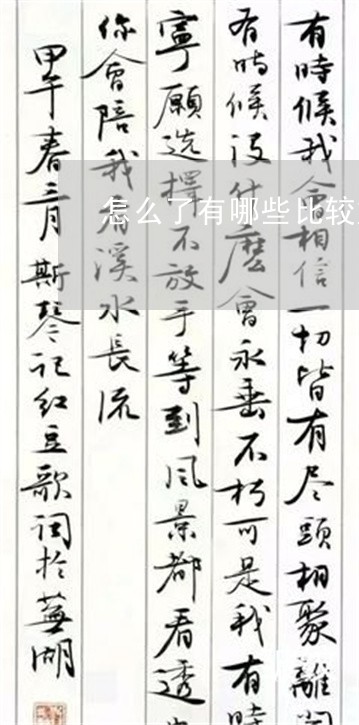 有時候我會相信一切皆有尽頭相聚離開
有時候没什麽會永垂不朽可是我有時
寧願选擇不放手等到风景都看透
你會陪我看溪水長流
甲午春三月斯琴记红豆歌词於蕪湖
怎么了有哪些比较